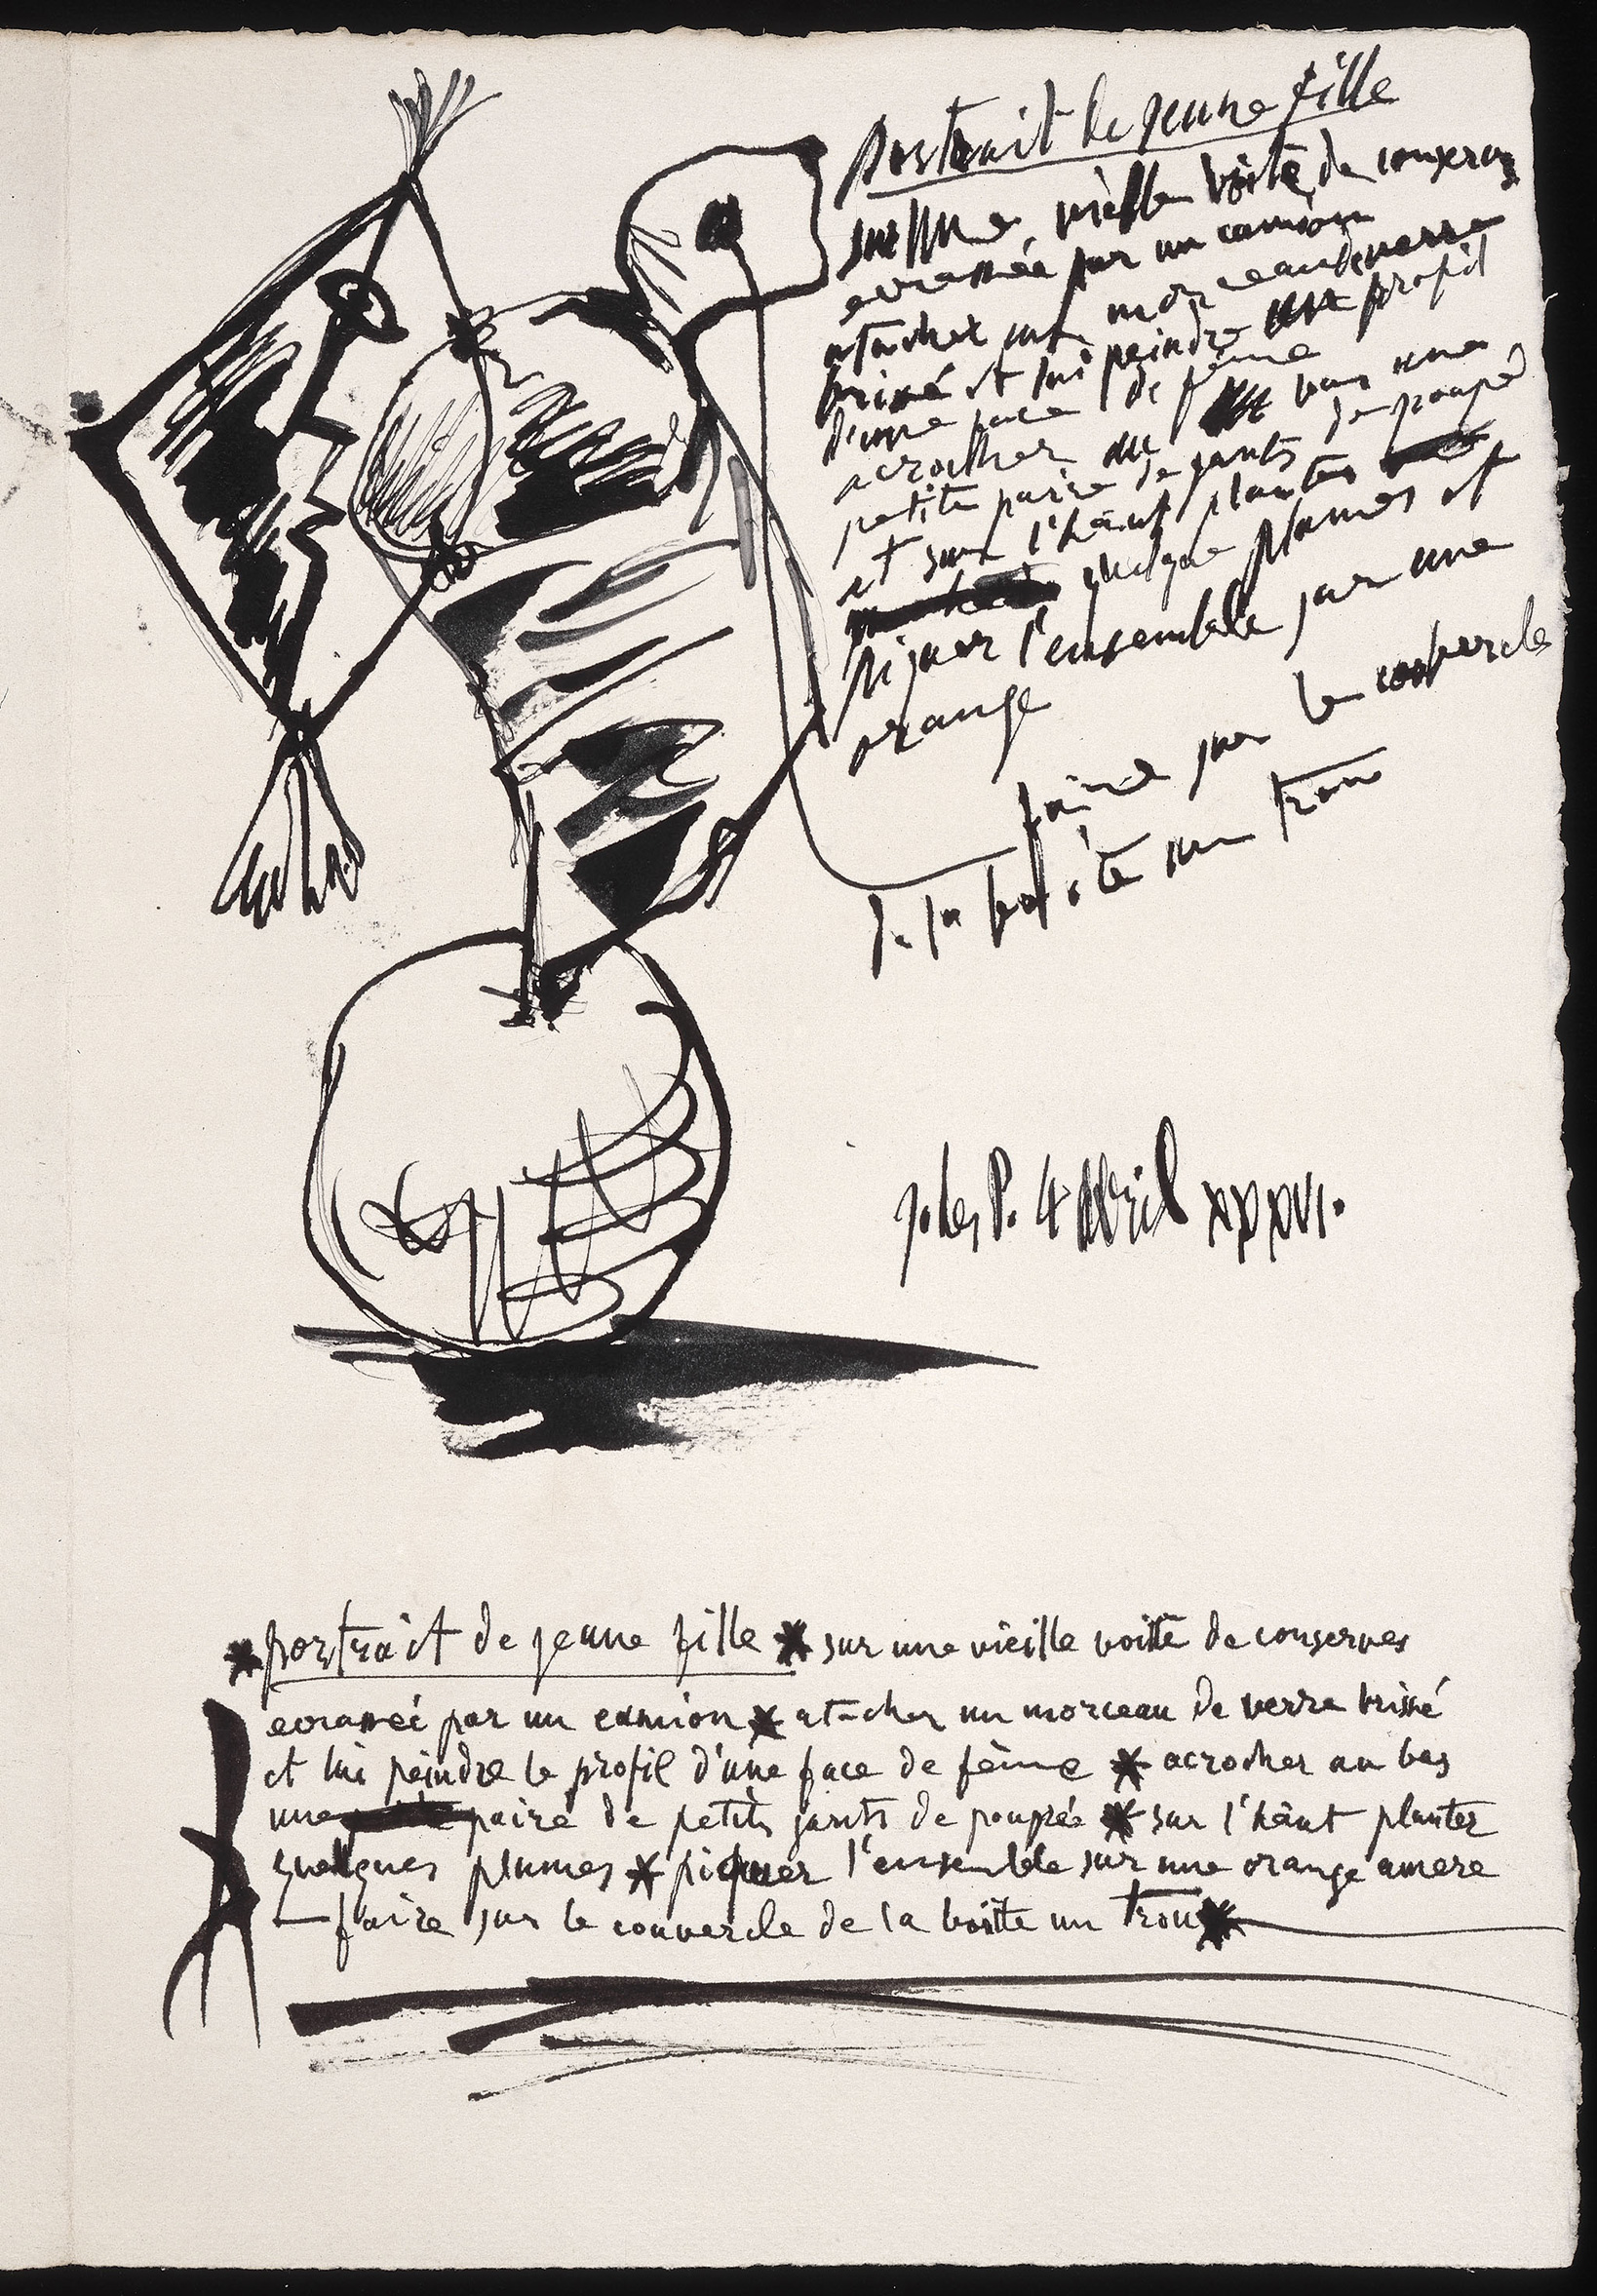 portrait de jeune fille
sur une vièlle boite de conserves
ecrassée par un camion
atacher un morceau de verre
brissé et lui peindre profil
d'une face de féme
acrocher au bas une
petite paire de gants de poupé
et sur l'haut planter
quelque plumes et
piquer l'ensemble sur une
orange
faire sur le couvercle
de la boite un trou
Juan les P. 4 Avril XXXVI.
*portrait de jeune fille * sur une vieille boitte de conserves
ecrassée par un camion * atacher un morceau de verre brissé
et lui peindre le profil d'une face de féme * acrocher au bas
une paire de petits gants de poupée * sur l'haut planter
quelques plumes * piquer l'ensemble sur une orange amere
— faire sur le couvercle de la boitte un trou *